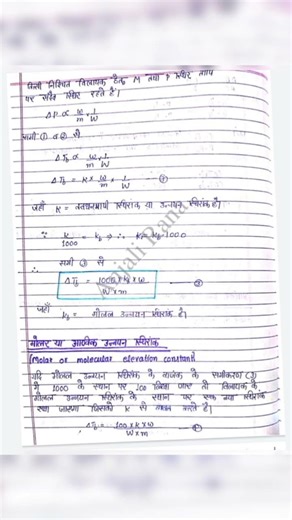 किसी निश्चित विलायक हेतु M तथा P स्थिर ताप
पर सदैव स्थिर रहते हैं।
ΔP ∝ w/m × 1/W
समी ① व ② से
ΔTb ∝ w/m × 1/W
ΔTb = K × w/m × 1/W
जहाँ K = क्वथनांक स्थिरांक या उन्नयन स्थिरांक है।
∵ K/1000 = kb ⇒ ∴ K = kb·1000
∴ समी ③ से
ΔTb = 1000 × kb × w / W × m
जहाँ
kb = मोलल उन्नयन स्थिरांक है।
मोलर या आण्विक उन्नयन स्थिरांक
(Molar or molecular elevation constant)
यदि मोलल उन्नयन स्थिरांक के व्यंजक के समीकरण (3)
में 1000 के स्थान पर 100 लिखा जाए तो विलायक के
मोलल उन्नयन स्थिरांक के स्थान पर एक नया स्थिरांक
रखा जाएगा जिसको K से व्यक्त करते हैं।
ΔTb = 100 × K × w / W × m
Anjali Rana